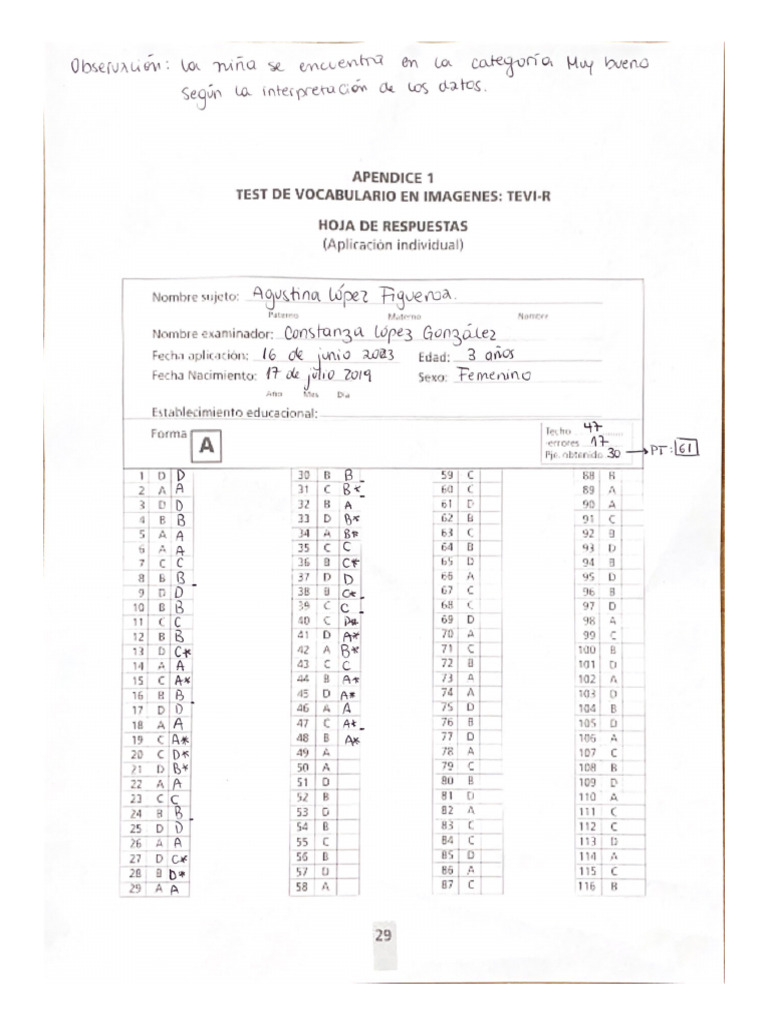 Observación: La niña se encuentra en la categoría Muy bueno
según la interpretación de los datos.
APENDICE 1
TEST DE VOCABULARIO EN IMAGENES: TEVI-R
HOJA DE RESPUESTAS
(Aplicación individual)
Nombre sujeto: Agustina López Figueroa.
Paterno Materno Nombre
Nombre examinador: Constanza López González
Fecha aplicación: 16 de junio 2023 Edad: 3 años
Fecha Nacimiento: 17 de julio 2019 Sexo: Femenino
Año Mes Dia
Establecimiento educacional:
Forma A
Techo 47
errores 17
Pje. obtenido 30 → PT: 61
1 D D
2 A A
3 D D
4 B B
5 A A
6 A A
7 C C
8 B B
9 D D
10 B B
11 C C
12 B B
13 D C*
14 A A
15 C A*
16 B B
17 D D
18 A A
19 C A*
20 C D*
21 D B*
22 A A
23 C C
24 B B
25 D D
26 A A
27 D C*
28 B D*
29 A A
30 B B
31 C B*
32 B A
33 D B*
34 A B*
35 C C
36 B C*
37 D D
38 B C*
39 C C
40 C D*
41 D A*
42 A B*
43 C C
44 B A*
45 D A*
46 A A
47 C A*
48 B A*
49 A
50 A
51 D
52 B
53 D
54 B
55 C
56 B
57 D
58 A
59 C
60 C
61 D
62 B
63 C
64 B
65 D
66 A
67 C
68 C
69 D
70 A
71 C
72 B
73 A
74 A
75 D
76 B
77 D
78 A
79 C
80 B
81 D
82 A
83 C
84 C
85 D
86 A
87 C
88 B
89 A
90 A
91 C
92 B
93 D
94 B
95 D
96 B
97 D
98 A
99 C
100 B
101 D
102 A
103 D
104 B
105 D
106 A
107 C
108 B
109 D
110 A
111 C
112 C
113 D
114 A
115 C
116 B
29